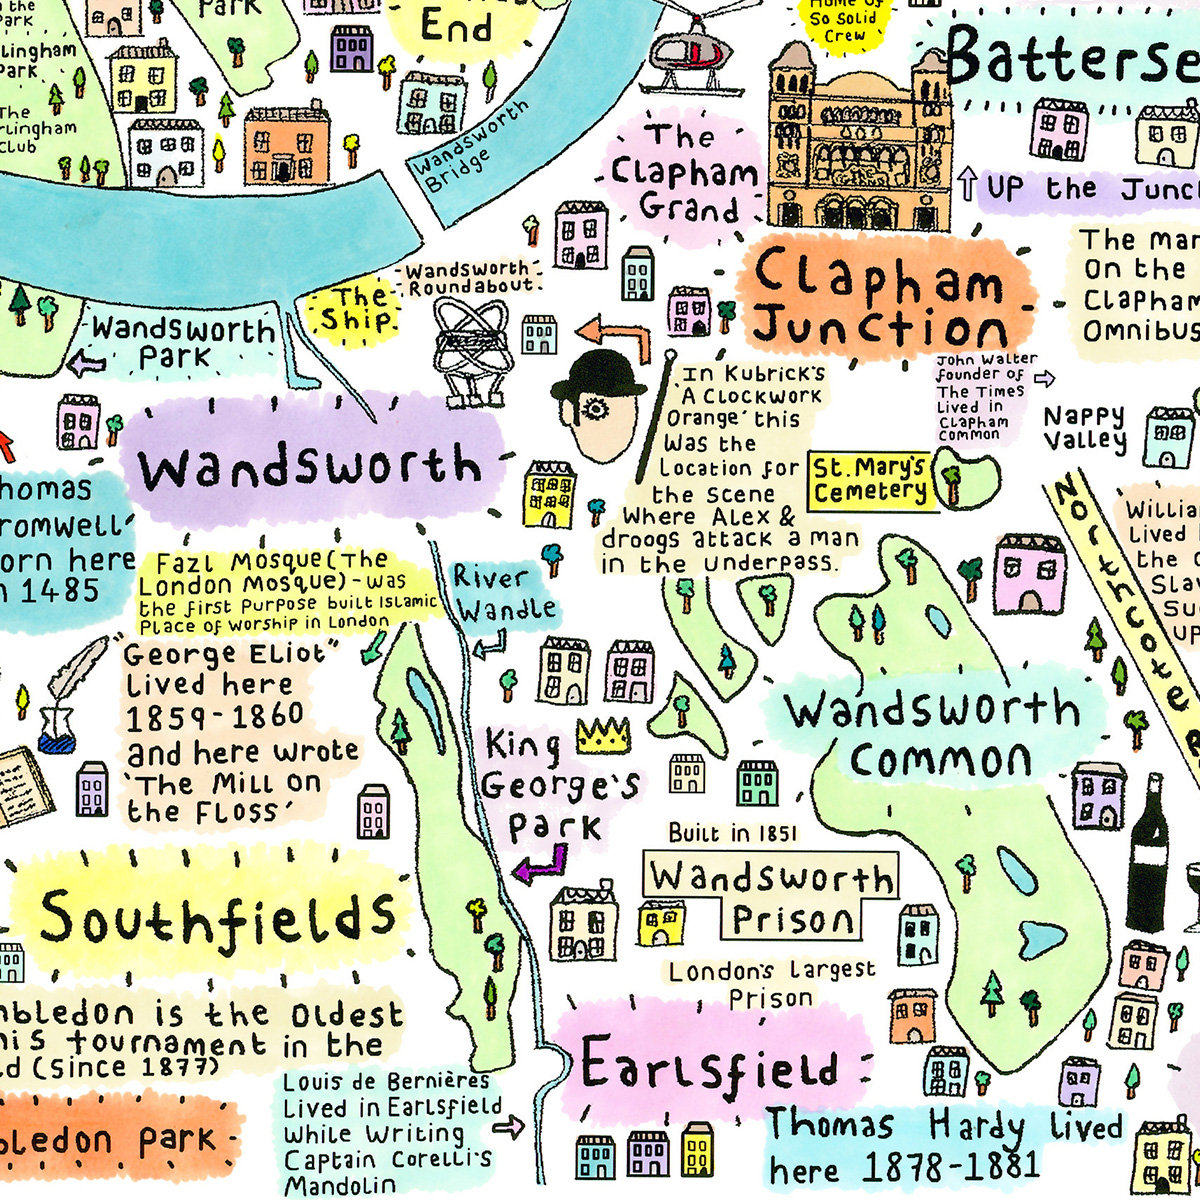 Park
Park
End
Home of
So Solid
Crew
Batterse
lingham
Park
The
rlingham
Club
Wandsworth
Bridge
The
Clapham
Grand
UP the Junc
Clapham
Junction
The Man
On the
Clapham
Omnibus
Wandsworth
Roundabout.
The
Ship.
Wandsworth
Park
John Walter
founder of
The Times
Lived in
Clapham
Common
Nappy
Valley
In Kubrick's
'A Clockwork
Orange' this
was the
location for
the scene
where Alex &
droogs attack a man
in the underpass.
St. Mary's
Cemetery
Wandsworth
homas
romwell
orn here
n 1485
Fazl Mosque (The
London Mosque) - was
the first purpose built Islamic
Place of worship in London
River
Wandle
Northcote
"George Eliot"
lived here
1859-1860
and here wrote
'The Mill on
the Floss'
Willia
Lived
the
Sla
Su
up
Wandsworth
Common
King
George's
Park
Built in 1851
Wandsworth
Prison
London's largest
Prison
Southfields
mbledon is the oldest
nis tournament in the
ld (since 1877)
Earlsfield
Louis de Bernières
Lived in Earlsfield
while writing
Captain Corelli's
Mandolin
bledon Park
Thomas Hardy lived
here 1878-1881